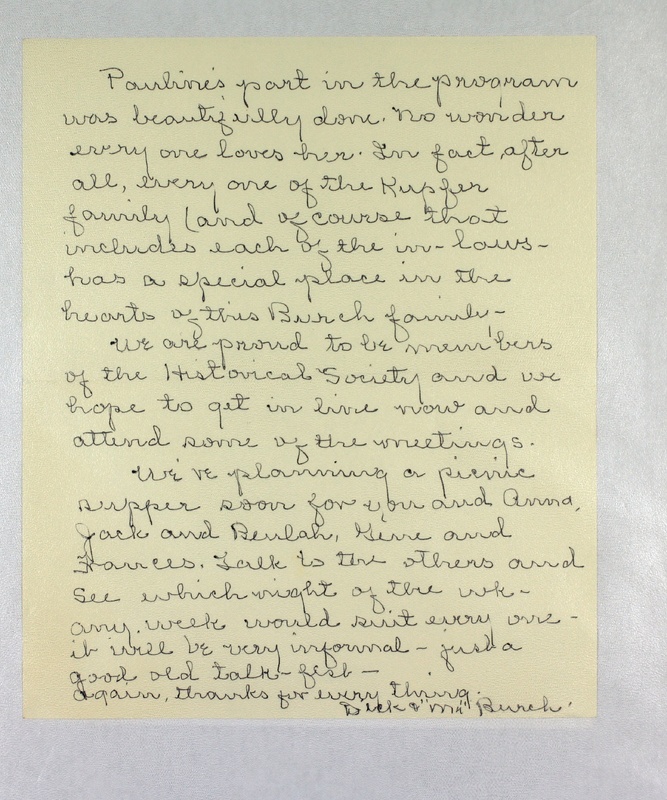 Pauline's part in the program
was beautifully done. No wonder
every one loves her. In fact, after
all, every one of the Kupfer
family (and of course that
includes each of the in-laws-
has a special place in the
hearts of this Burch family-
We are proud to be members
of the Historical Society and we
hope to get in line now and
attend some of the meetings.
We're planning a picnic
supper soon for you and Anna,
Jack and Beulah, Gene and
Frances. Talk to the others and
see which night of the wk-
any week would suit every one-
it will be very informal - just a
good old talk-fest-
Again, thanks for every thing.
Dick & Burch